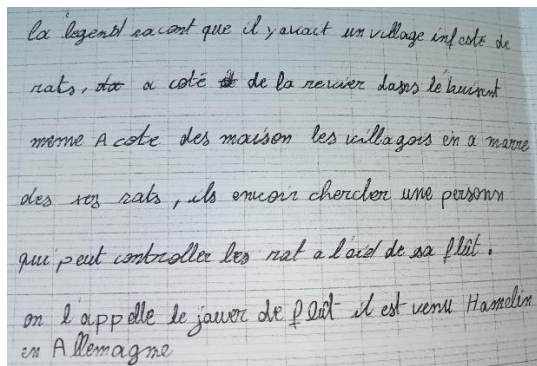 la legend racont que il y avait un village infesté de
rats, a coté de la revier dans le buisent
meme A cote des maison les villagois en a marre
des ses rats, ils envoir chercher une personn
qui peut controller les rat a l'aid de sa flût.
on l'appelle le jouer de flût il est venu Hamelin
en Allemagne